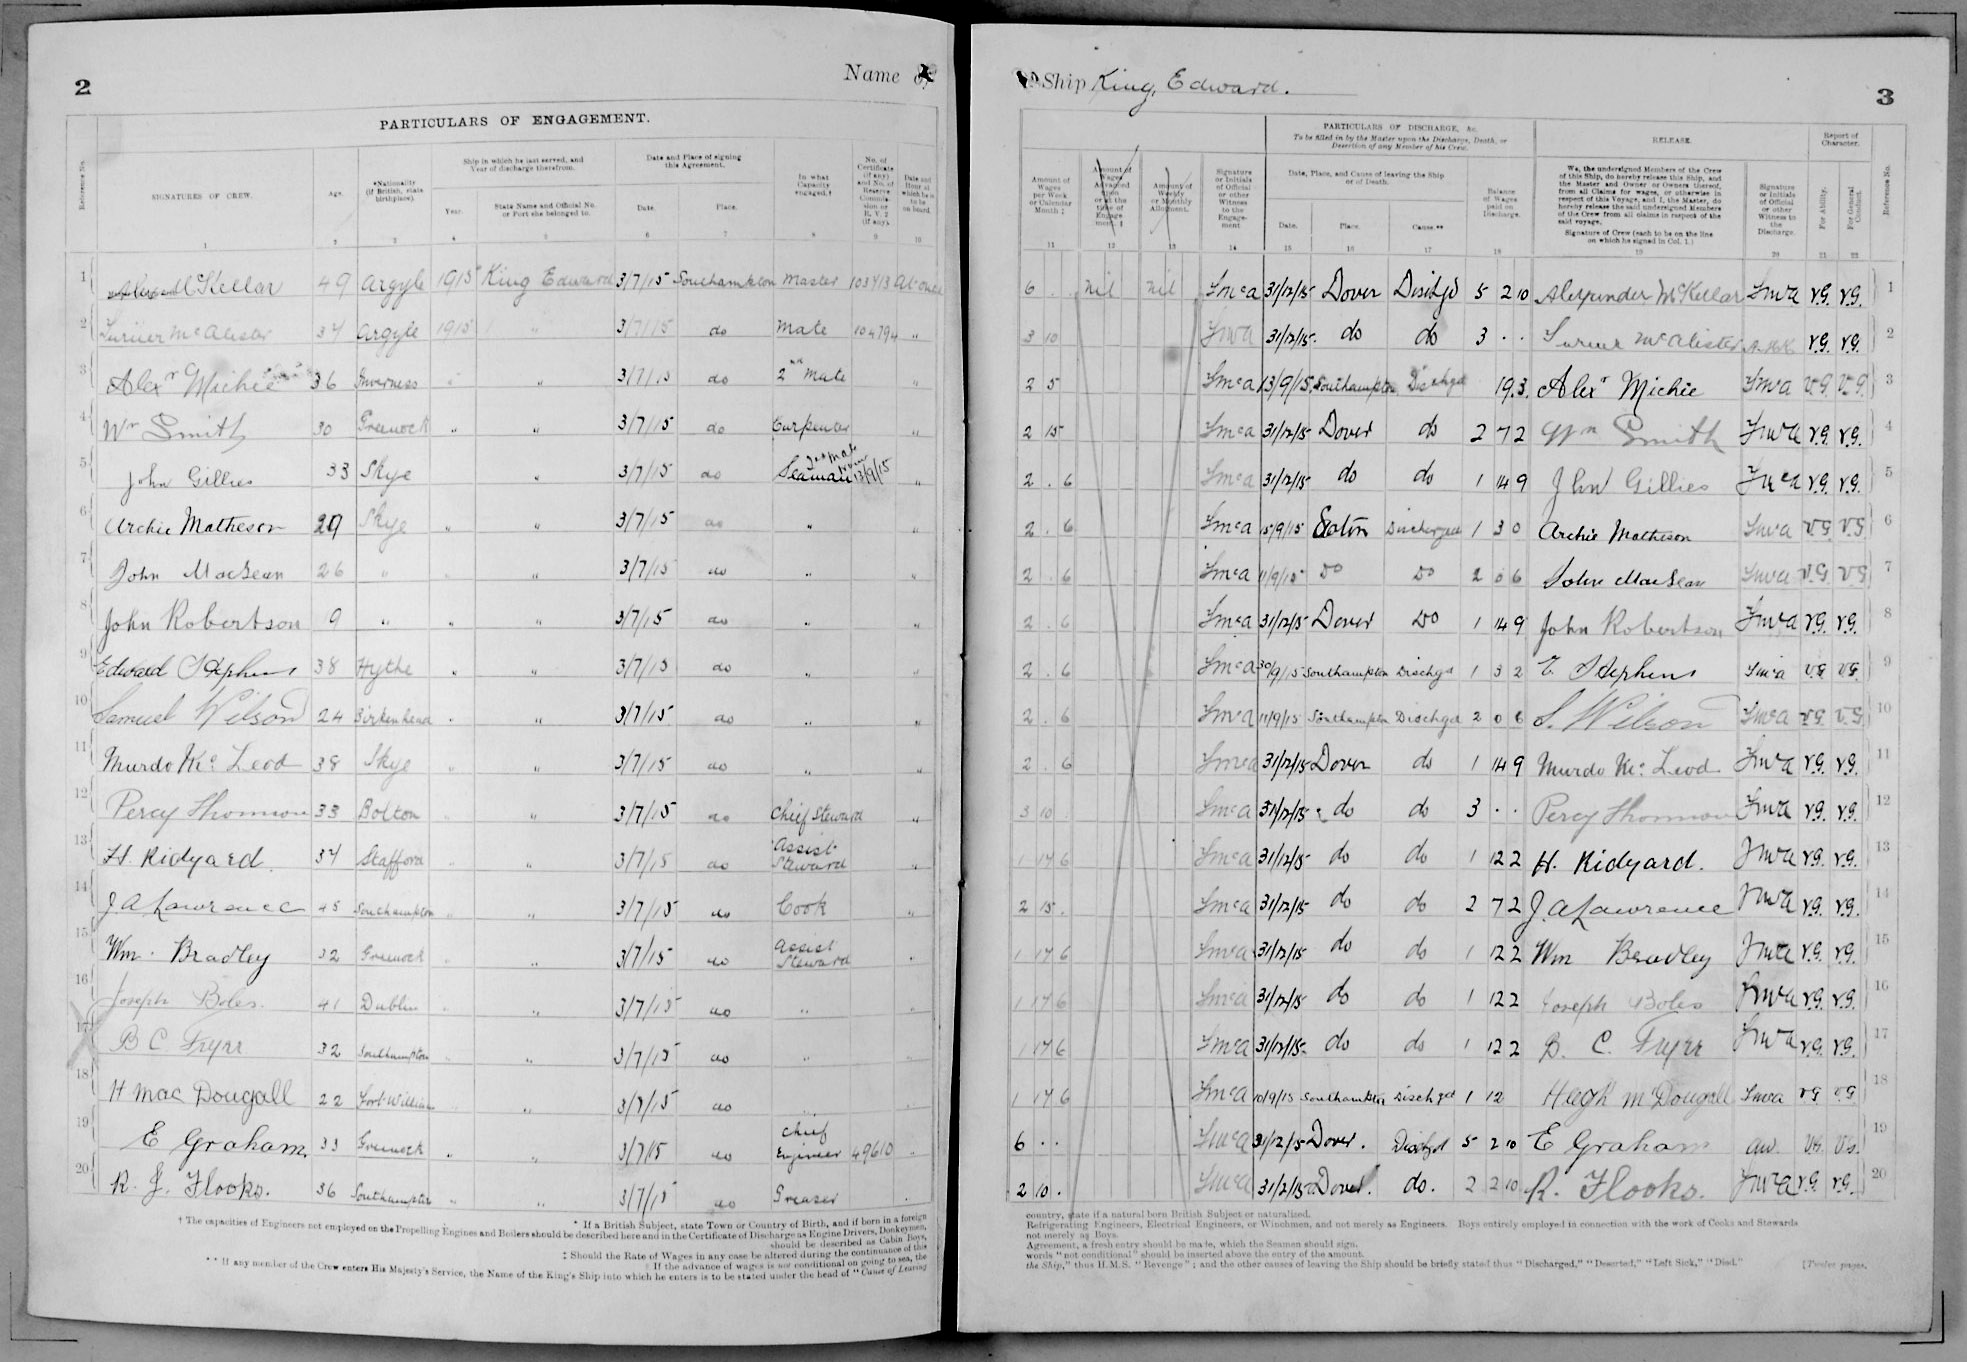 2
Name of
PARTICULARS OF ENGAGEMENT.
Reference No.
SIGNATURES OF CREW.
Age.
*Nationality (if British, state birthplace).
Ship in which he last served, and Year of discharge therefrom.
Year.
State Name and Official No. or Port she belonged to.
Date and Place of signing this Agreement.
Date.
Place.
In what Capacity engaged.†
No. of Certificate (if any) and No. of Reserve Commission or R.V. 2 (if any).
Date and Hour at which he is to be on board.
1 2 3 4 5 6 7 8 9 10
1 Alex McKellar 49 Argyle 1915 King Edward 3/7/15 Southampton Master 103413 At once
2 Turner McAlister 34 Argyle 1915 " 3/7/15 do Mate 104794 "
3 Alexr Michie 36 Inverness " " 3/7/15 do 2nd Mate "
4 Wm Smith 30 Greenock " " 3/7/15 do Carpenter "
5 John Gillies 33 Skye " 3/7/15 do Seaman 2nd Mate from 13/9/15 "
6 Archie Matheson 29 Skye " " 3/7/15 do " "
7 John MacLean 26 " " " 3/7/15 do " "
8 John Robertson 9 " " " 3/7/15 do " "
9 Edward Stephens 38 Hythe " " 3/7/15 do " "
10 Samuel Wilson 24 Birkenhead " " 3/7/15 do " "
11 Murdo Mc Leod 38 Skye " " 3/7/15 do " "
12 Percy Thomson 33 Bolton " " 3/7/15 do Chief Steward "
13 H. Ridyard. 34 Stafford " " 3/7/15 do Assist Steward "
14 J A Lawrence 45 Southampton " " 3/7/15 do Cook "
15 Wm. Bradley 32 Greenock " " 3/7/15 do Assist Steward "
16 Joseph Boles. 41 Dublin " " 3/7/15 do " "
17 B C Fryer 32 Southampton " " 3/7/15 do " "
18 H Mac Dougall 22 Fort William " " 3/7/15 do " "
19 E Graham. 33 Greenock " " 3/7/15 do Chief Engineer 49610 "
20 R. J. Flooks. 36 Southampton " " 3/7/15 do Greaser "
* If a British Subject, state Town or Country of Birth, and if born in a foreign
† The capacities of Engineers not employed on the Propelling Engines and Boilers should be described here and in the Certificate of Discharge as Engine Drivers, Donkeymen,
should be described as Cabin Boys,
‡ Should the Rate of Wages in any case be altered during the continuance of this
† If the advance of wages is not conditional on going to sea, the
** If any member of the Crew enters His Majesty's Service, the Name of the King's Ship into which he enters is to be stated under the head of "Cause of Leaving
Ship King Edward.
3
PARTICULARS OF DISCHARGE, &c.
To be filled in by the Master upon the Discharge, Death, or Desertion of any Member of his Crew.
RELEASE.
Report of Character.
Amount of Wages per Week or Calendar Month ‡
Amount of Wages Advanced upon or at the time of Engagement. ‡
Amount of Weekly or Monthly Allotment.
Signature or Initials of Official or other Witness to the Engagement
Date, Place, and Cause of leaving the Ship or of Death.
Date.
Place.
Cause.**
Balance of Wages paid on Discharge.
We, the undersigned Members of the Crew of this Ship, do hereby release this Ship, and the Master and Owner or Owners thereof, from all Claims for wages, or otherwise in respect of this Voyage, and I, the Master, do hereby release the said undersigned Members of the Crew from all claims in respect of the said voyage.
Signature of Crew (each to be on the line on which he signed in Col. 1.)
Signature or Initials of Official or other Witness to the Discharge.
For Ability.
For General Conduct.
Reference No.
11 12 13 14 15 16 17 18 19 20 21 22
6 . . nil nil JMcA 31/12/15 Dover Dischgd 5 2 10 Alexander McKellar JMcA V.G. V.G. 1
3 10 JMcA 31/12/15 do do 3 . . Turner McAlister V.G. V.G. 2
2 5 JMcA 13/9/15 Southampton Dischgd 19.3. Alexr Michie JMcA V.G. V.G. 3
2 15 JMcA 31/12/15 Dover do 2 7 2 Wm Smith JMcA V.G. V.G. 4
2 . 6 JMcA 31/12/15 do do 1 14 9 John Gillies JMcA V.G. V.G. 5
2 . 6 JMcA 15/9/15 Soton Discharged 1 3 0 Archie Matheson JMcA V.G. V.G. 6
2 . 6 JMcA 11/9/15 Do Do 2 0 6 John MacLean JMcA V.G. V.G. 7
2 . 6 JMcA 31/12/15 Dover Do 1 14 9 John Robertson JMcA V.G. V.G. 8
2 . 6 JMcA 30/9/15 Southampton Dischgd 1 3 2 E Stephens JMcA V.G. V.G. 9
2 . 6 JMcA 11/9/15 Southampton Dischgd 2 0 6 S. Wilson JMcA V.G. V.G. 10
2 . 6 JMcA 31/12/15 Dover do 1 14 9 Murdo Mc Leod JMcA V.G. V.G. 11
3 10 . JMcA 31/12/15 do do 3 . . Percy Thomson JMcA V.G. V.G. 12
1 17 6 JMcA 31/12/15 do do 1 12 2 H. Ridyard. JMcA V.G. V.G. 13
2 15 . JMcA 31/12/15 do do 2 7 2 J. A Lawrence JMcA V.G. V.G. 14
1 17 6 JMcA 31/12/15 do do 1 12 2 Wm Bradley JMcA V.G. V.G. 15
1 17 6 JMcA 31/12/15 do do 1 12 2 Joseph Boles JMcA V.G. V.G. 16
1 17 6 JMcA 31/12/15 do do 1 12 2 B. C. Fryer JMcA V.G. V.G. 17
1 17 6 JMcA 10/9/15 Southampton Dischgd 1 12 Hugh McDougall JMcA V.G. V.G. 18
6 . . JMcA 31/12/15 Dover. Dischgd 5 2 10 E Graham V.G. V.G. 19
2 10 . JMcA 31/12/15 Dover. do. 2 2 10 R. Flooks. JMcA V.G. V.G. 20
country, state if a natural born British Subject or naturalized.
Refrigerating Engineers, Electrical Engineers, or Winchmen, and not merely as Engineers. Boys entirely employed in connection with the work of Cooks and Stewards
not merely as Boys.
Agreement, a fresh entry should be made, which the Seamen should sign.
words "not conditional" should be inserted above the entry of the amount.
the Ship," thus H.M.S. "Revenge"; and the other causes of leaving the Ship should be briefly stated thus "Discharged," "Deserted," "Left Sick," "Died."
[Twelve pages.